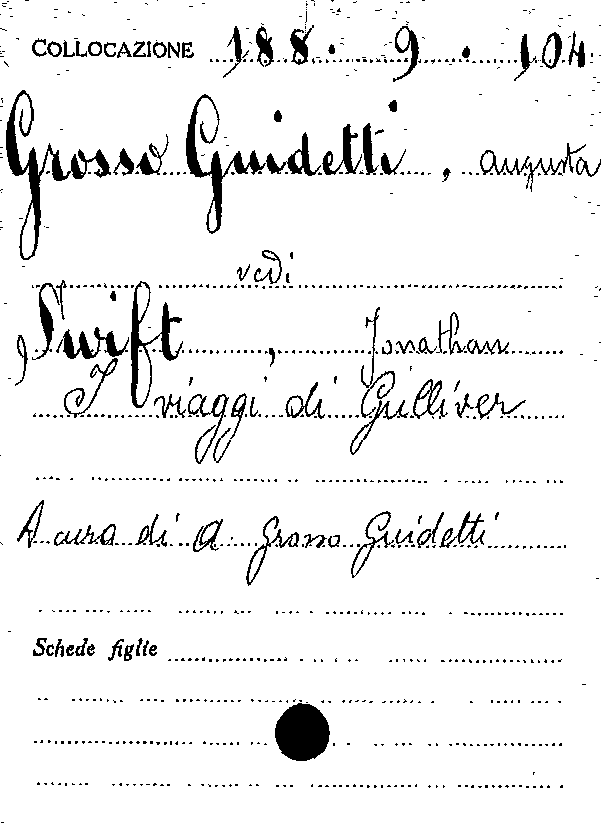 COLLOCAZIONE 188. 9. 104
Grosso Guidetti, Augusta
vedi
Swift, Jonathan
I viaggi di Gulliver
A cura di A. Grosso Guidetti
Schede figlie